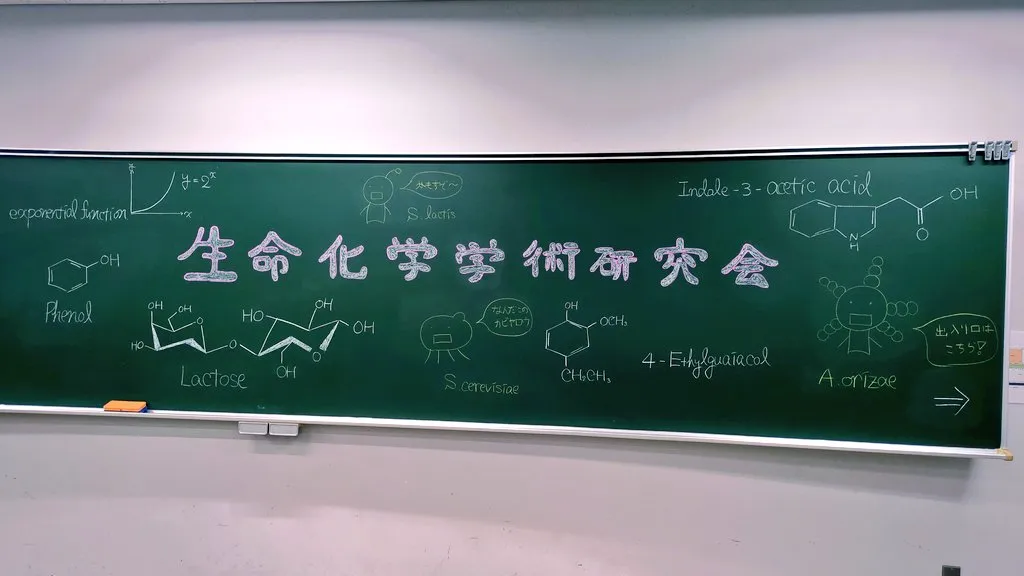 y = 2ˣ
y
x
exponential function
かもすぞ〜
S. lactis
Indole-3-acetic acid
OH
O
N
H
生命化学学術研究会
OH
Phenol
OH
OH
O
HO
O
HO
OH
OH
O
OH
Lactose
なんだこの
カビヤロウ
S. cerevisiae
OH
OCH₃
CH₂CH₃
4-Ethylguaiacol
A. orizae
出入り口は
こちら!